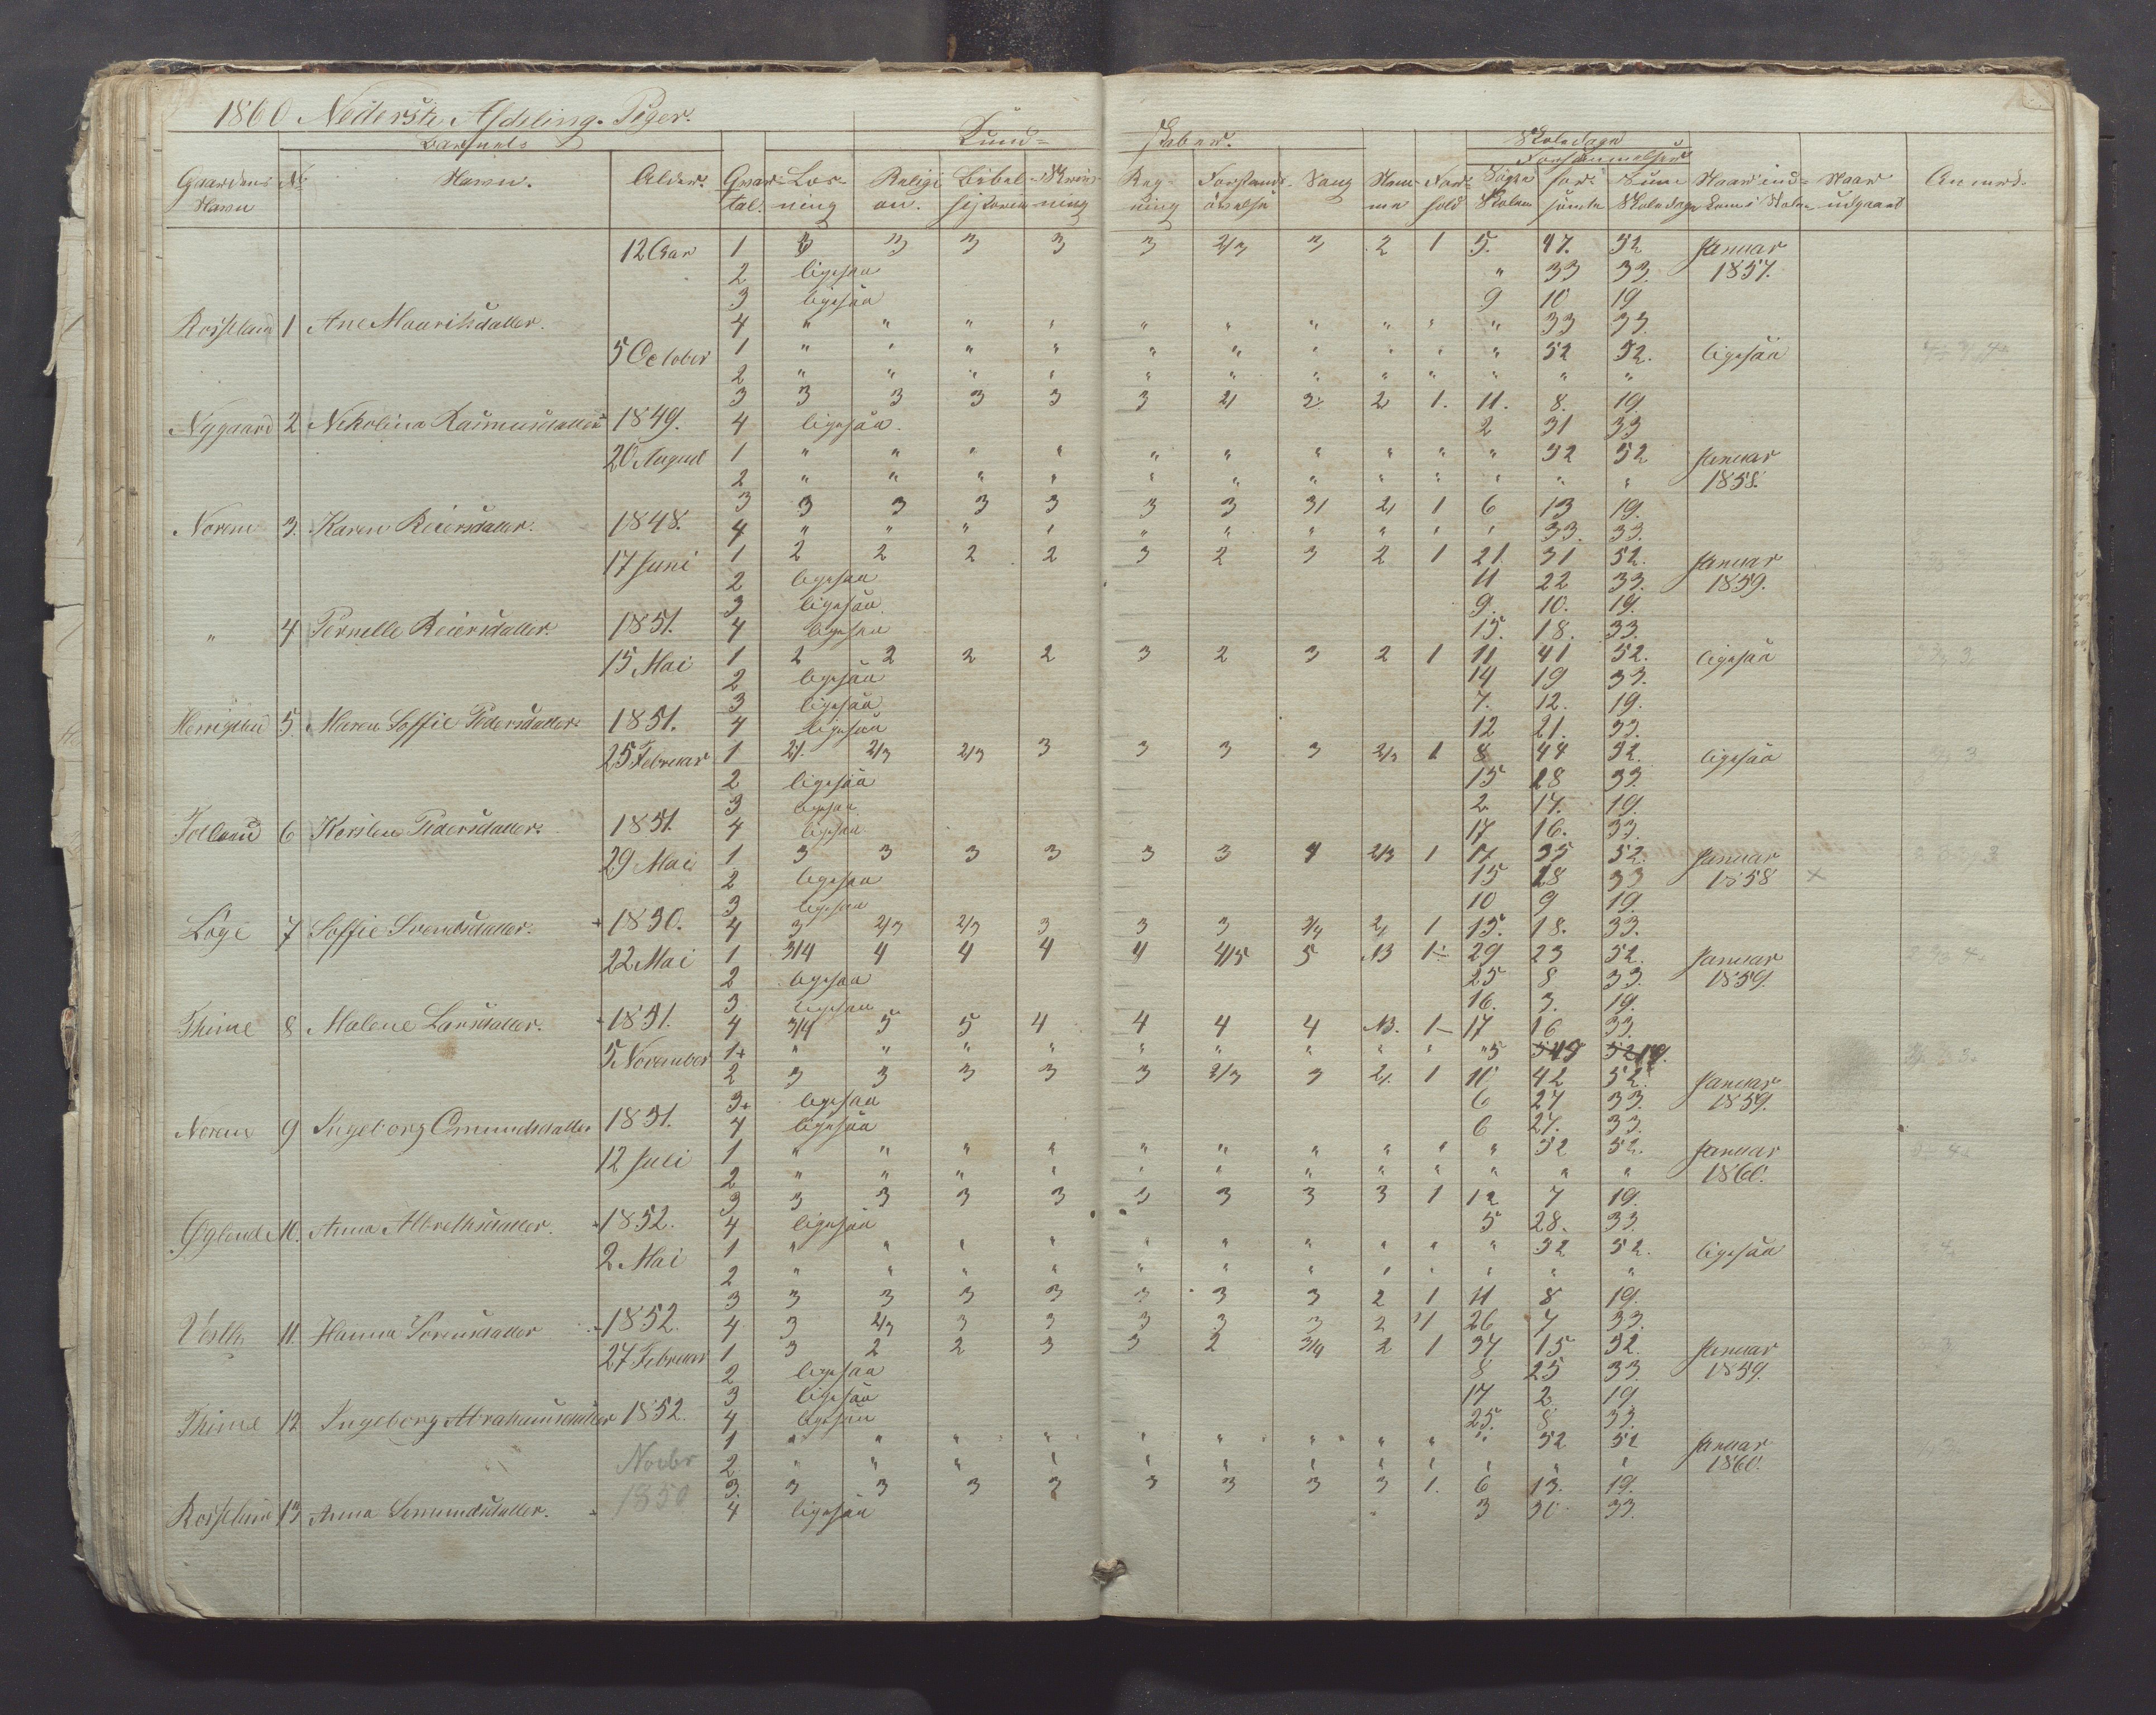 1860 Nederste Afdeling. Piger.
Barnets Kund= skaber. Skoledage
Forsømmelser
Gaardens Navn No Navn. Alder. Qvartal. Læsning Religion. Bibelhistorie Skrivning Regning Forstandsøvelse Sang Nemme Forhold Søgte Skolen forsømte Sum Skoledage Naar indkom i Skolen Naar udgaaet Anmerk.
12 Aar 1 3 3 3 3 3 2/3 3 2 1 5. 47. 52 Januar
2 ligesaa " 33 33. 1857.
3 ligesaa 9 10 19
Rosseland 1 Ane Mauritsdatter. 4 " " " " " " " " " " 33 33.
5 October 1 " " " " " " " " " " 52 52. ligesaa
2 " " " " " " " " " " " "
3 3 3 3 3 3 2/ 3. 2 1. 11. 8. 19.
Nygaard 2 Nikolina Rasmusdatter 1849. 4 ligesaa. 2 31 33
20 August 1 " " " " " " " " " " 52 52 Januar
2 " " " " " " " " " " " " 1858.
3 3 3 3 3 3 3 3/ 2/ 1 6 13 19.
Norem 3. Karen Reiersdatter. 1848. 4 " " " " " " " " " " 33. 33.
17 Juni 1 2 2 2 2 3 2 3 2 1 21. 31 52. Januar
2 ligesaa 11 22 33. 1859.
3 ligesaa. 9. 10. 19.
" 4 Pernelle Reiersdatter. 1851. 4 ligesaa 15. 18. 33.
15 Mai 1 2 2 2 2 3 2 3 2 1 11 41 52. ligesaa
2 ligesaa 14 19 33.
3 ligesaa 7. 12. 19.
5. Maren Soffie Pedersdatter 1851. 4 ligesaa 12 21. 33.
25 Februar 1 2/. 2/3 2/3 3 3 3 3 2/3 1 8 44 52. ligesaa
2 ligesaa 15 18 33.
3 ligesaa 2. 17. 19.
6 Kersten Pedersdatter. 1851. 4 ligesaa 17 16. 33.
29 Mai 1 3 3 3 3 3 3 4 2/3 1 17 35 52. Januar
2 ligesaa 15 18 33 1858 ×
3 ligesaa 10 9 19.
Løge 7 Soffie Svendsdatter. + 1850. 4 3 2/3 2/3 3 3 3 3/4 2/ 1 15. 18. 33.
22 Mai 1 3/4 4 4 4 4 4/5 5 NB 1- 29 23 52. Januar
2 ligesaa 25 8 33. 1859.
3 ligesaa 16. 3. 19.
Thime 8 Malene Larsdatter. 1851. 4 3/4 5 5 4 4 4 4 NB. 1- 17 16 33.
5 November 1+ " " " " " " " " "
2 3 3 3 3 3 2/3 3 2/. 1 10 42 52. Januar
3+ ligesaa 6 27 33. 1859.
Norem 9 Ingeborg Omundsdatter 1851. 4 ligesaa 6 27. 33.
12 Juli 1 " " " " " " " " " " 52 52. Januar
2 " " " " " " " " " " " " 1860.
3 3 3 3 3 3 3 3 3 1 12 7 19.
Øglend 10. Anna Albretsdatter. 1852. 4 ligesaa 5 28. 33.
2 Mai 1 " " " " " " " " " " 52 52. ligesaa
2 " " " " " " " " " " " "
3 3 3 3 3 3 3 3 2 1 11 8 19.
11. Hanna Sørensdatter 1852. 4 3 2/3 3 3 3 3 3 2 1 26 7 33.
27 Februar 1 3 2 2 3 3 2 3/4 2 1 37 15 52. Januar
2 ligesaa 8 25 33. 1859.
3 ligesaa 17 2. 19
Thime 12 Ingeborg Abrahamsdatter 1852. 4 ligesaa 25. 8. 33.
1 " " " " " " " " " " 52 52 Januar
Novbr 2 " " " " " " " " " " " " 1860.
1850 3. 3 3 3 3 3 3 3 3 1. 6 13. 19.
Rosseland 13 Anna Semundsdatter. 4 ligesaa 3 30 33.